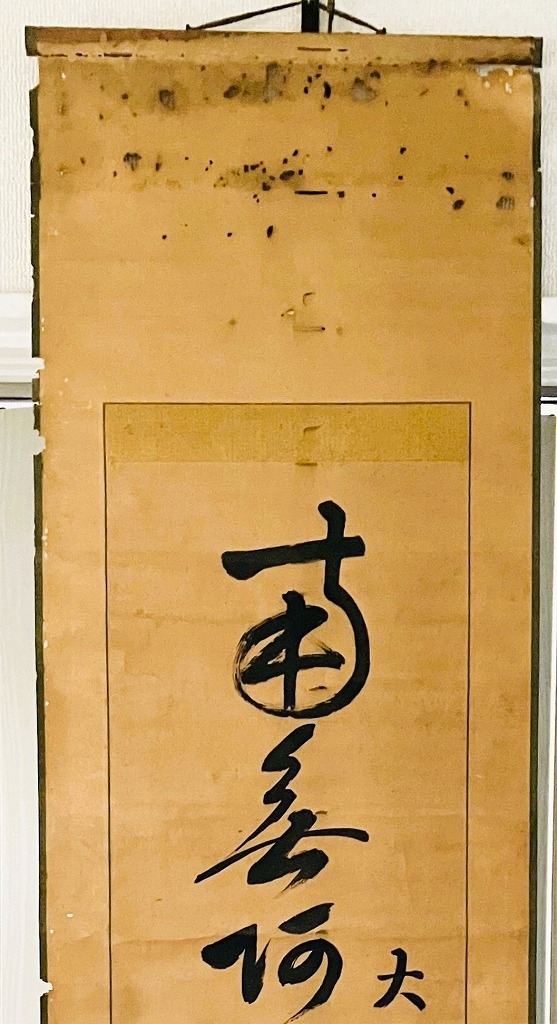 南無阿
大